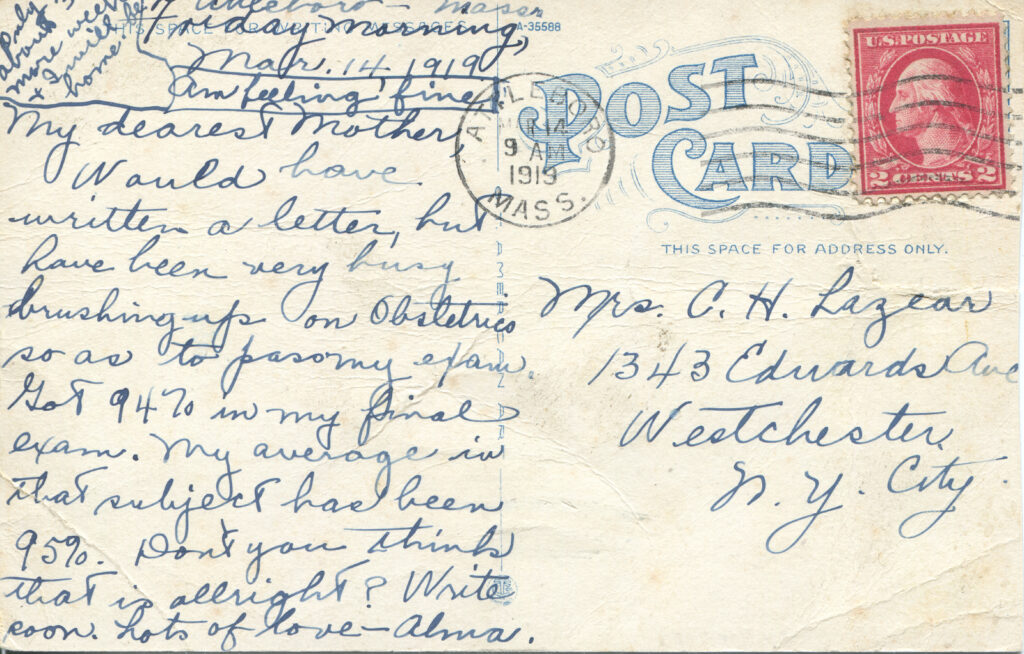 Attleboro - Mass
Friday Morning,
Mar. 14 1919
Am feeling fine
Only
about 3
more weeks
& I will be
home.
THIS SPACE FOR WRITING MESSAGES
A-35588
My dearest Mother
Would have
written a letter, but
have been very busy
brushing up on Obstetrics
so as to pass my exam.
Got 94% in my final
exam. My average in
that subject has been
95%. Don't you think
that is allright? Write
soon. Lots of love - Alma.
POST
CARD
THIS SPACE FOR ADDRESS ONLY.
ATTLEBORO
MAR 14
9 AM
1919
MASS.
U.S. POSTAGE
2 CENTS 2
AMERICAN ART
Mrs. C. H. Lazear
1343 Edwards Ave
Westchester,
N. Y. City.